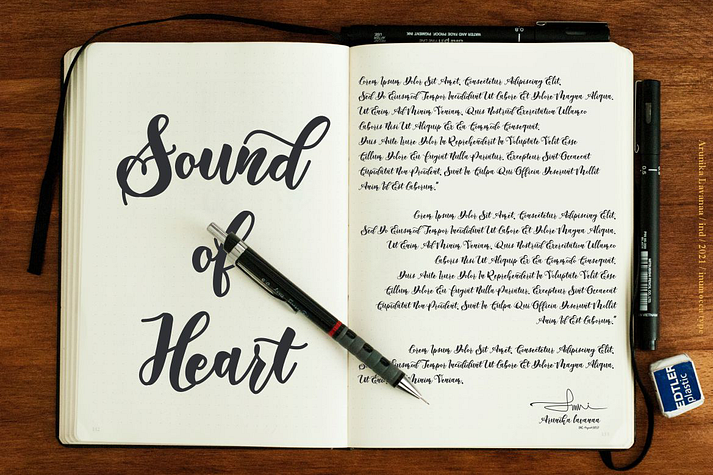 Sound
of
Heart
Lorem Ipsum Dolor Sit Amet, Consectetur Adipiscing Elit,
Sed Do Eiusmod Tempor Incididunt Ut Labore Et Dolore Magna Aliqua.
Ut Enim Ad Minim Veniam, Quis Nostrud Exercitation Ullamco
Laboris Nisi Ut Aliquip Ex Ea Commodo Consequat.
Duis Aute Irure Dolor In Reprehenderit In Voluptate Velit Esse
Cillum Dolore Eu Fugiat Nulla Pariatur. Excepteur Sint Occaecat
Cupidatat Non Proident, Sunt In Culpa Qui Officia Deserunt Mollit
Anim Id Est Laborum."
Lorem Ipsum Dolor Sit Amet, Consectetur Adipiscing Elit,
Sed Do Eiusmod Tempor Incididunt Ut Labore Et Dolore Magna Aliqua.
Ut Enim Ad Minim Veniam, Quis Nostrud Exercitation Ullamco
Laboris Nisi Ut Aliquip Ex Ea Commodo Consequat.
Duis Aute Irure Dolor In Reprehenderit In Voluptate Velit Esse
Cillum Dolore Eu Fugiat Nulla Pariatur. Excepteur Sint Occaecat
Cupidatat Non Proident, Sunt In Culpa Qui Officia Deserunt Mollit
Anim Id Est Laborum."
Lorem Ipsum Dolor Sit Amet, Consectetur Adipiscing Elit,
Eiusmod Tempor Incididunt Ut Labore Et Dolore Magna Aliqua.
Ut Minim Veniam,
Arunika Lavanaa
WATER AND FADE PROOF, PIGMENT INK
0.8
0.5
EDTLER
plastic
Arunika Lavanaa / ind / 2021 /